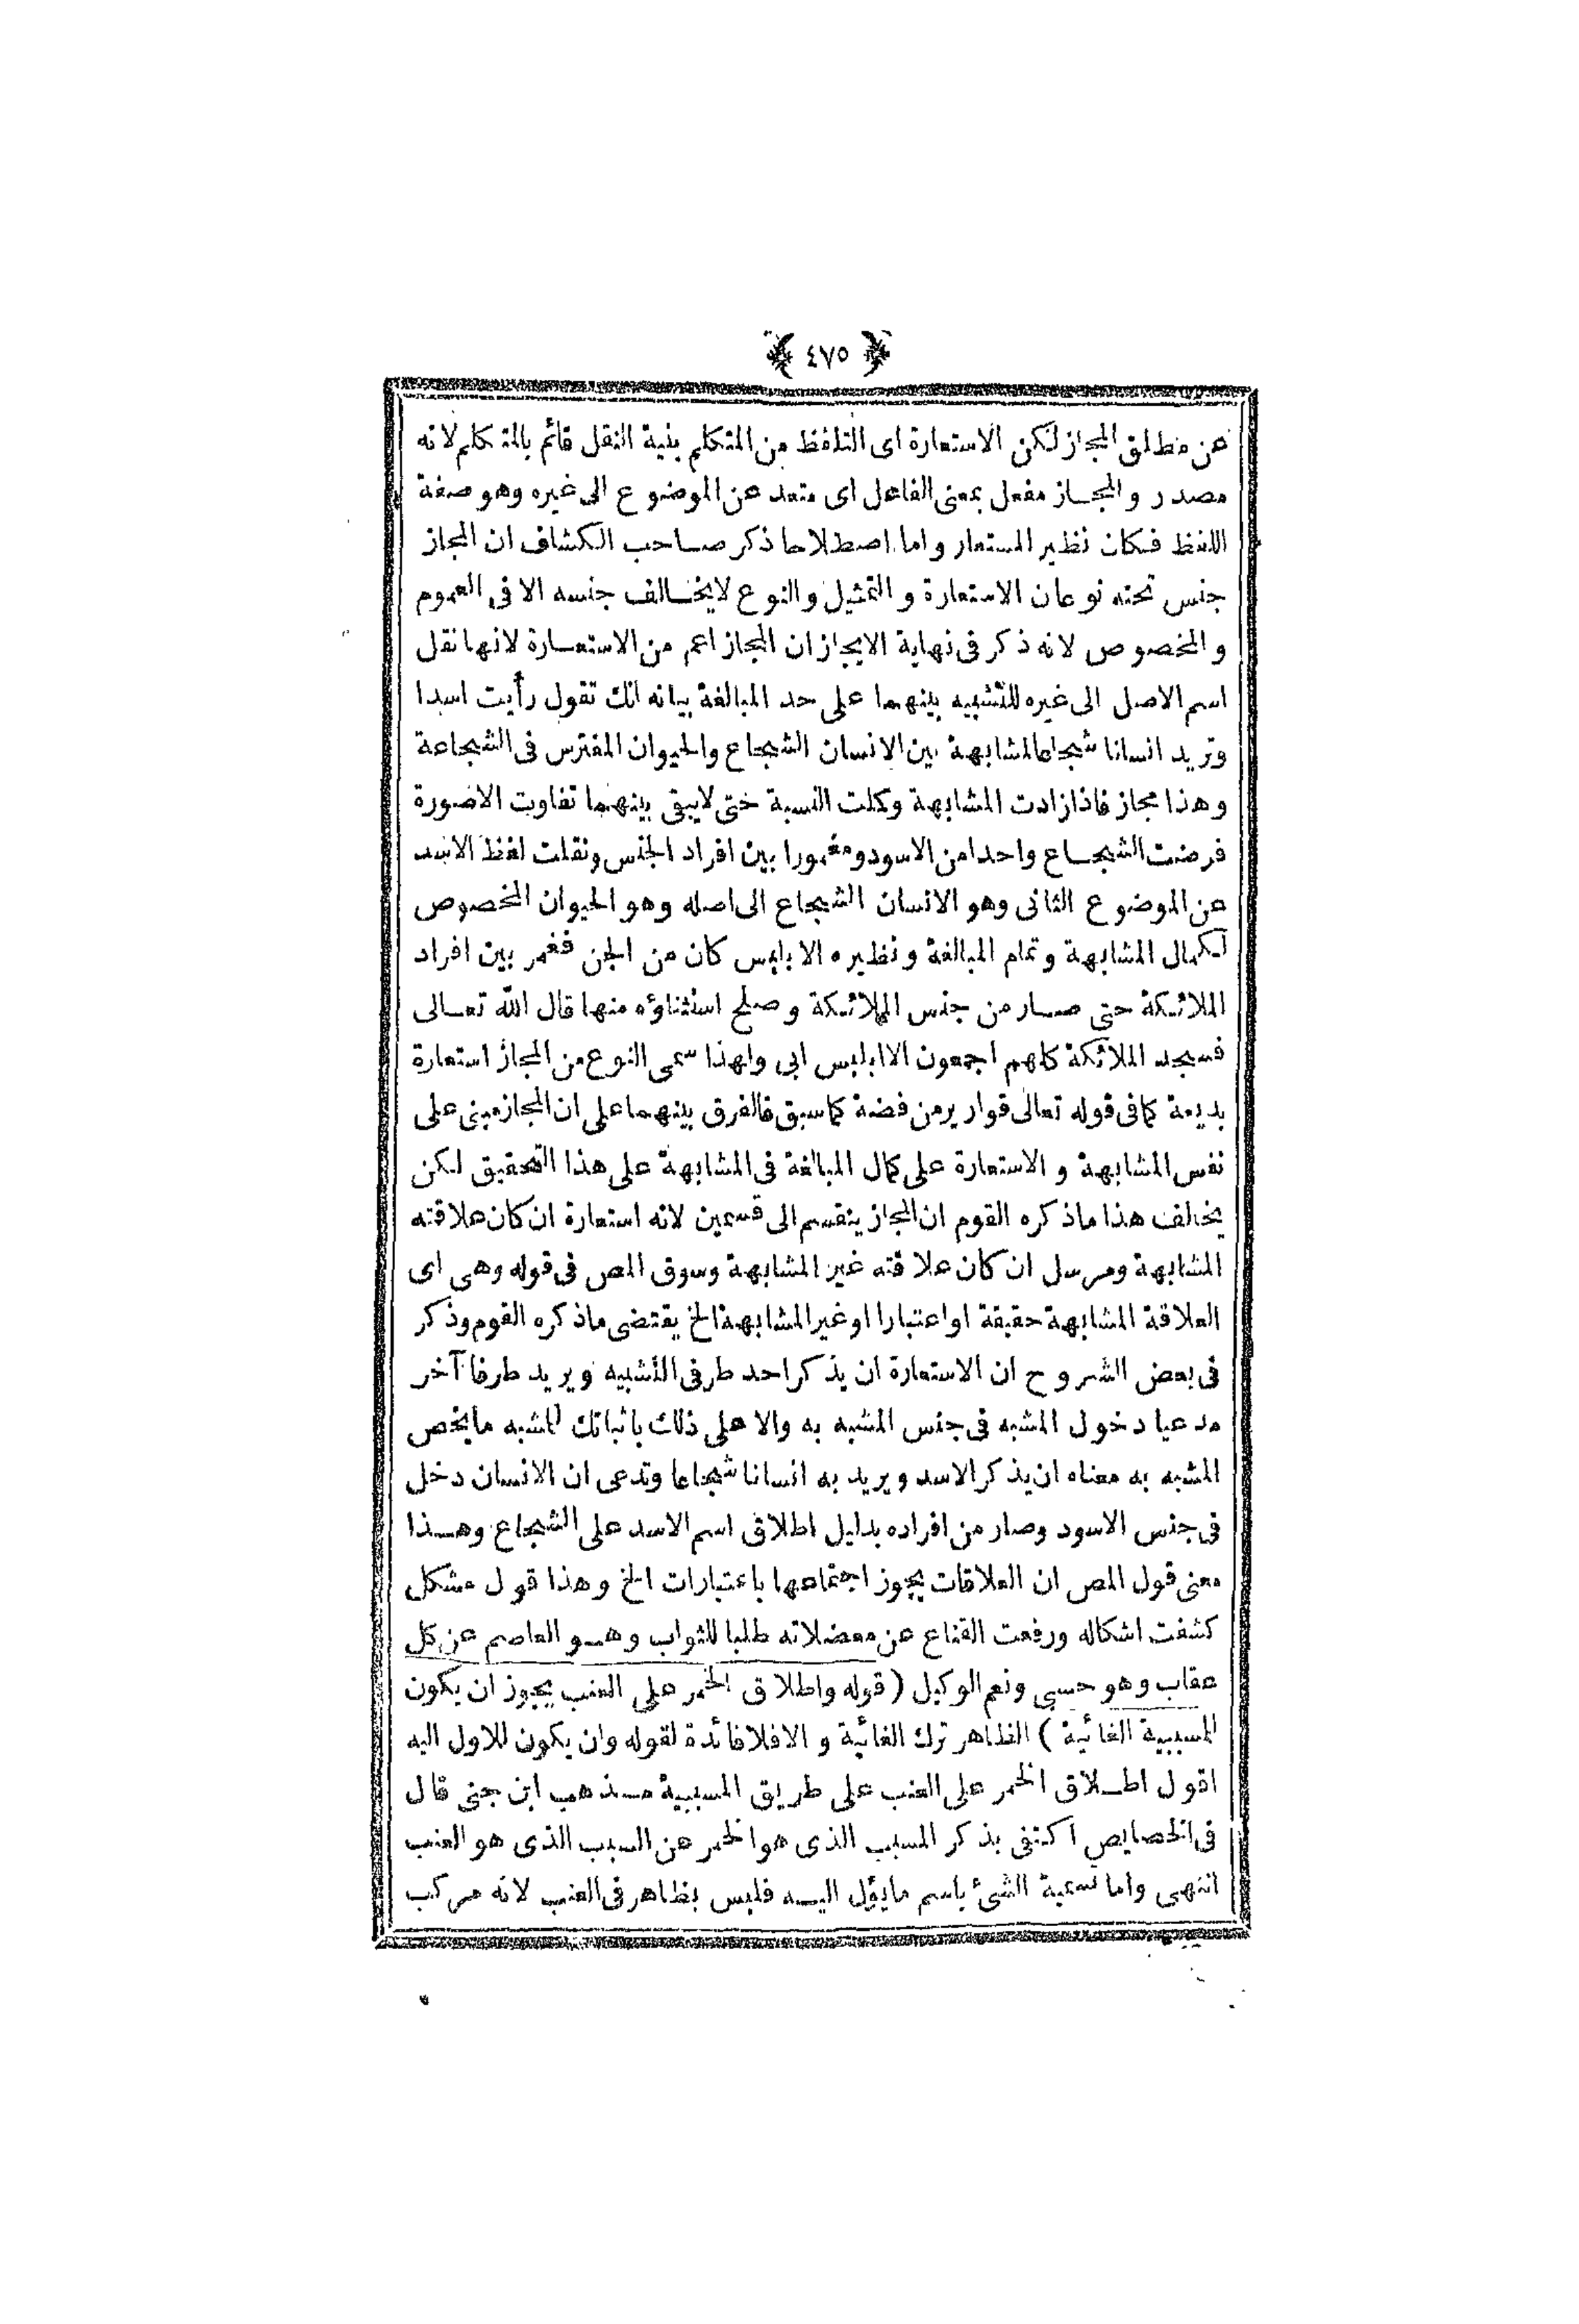 ﴿ ٤٧٥ ﴾
عن مطلق المجاز لكن الاستعارة اى التلفظ من المتكلم بنية النقل قائم بالمتكلم لانه
مصدر والمجاز مفعل بمعنى الفاعل اى متعد عن الموضوع الى غيره وهو صفة
اللفظ فكان نظير المستعار واما اصطلاحا ذكر صاحب الكشاف ان المجاز
جنس تحته نوعان الاستعارة والتمثيل والنوع لايخالف جنسه الا فى العموم
والخصوص لانه ذكر فى نهاية الايجاز ان المجاز اعم من الاستعارة لانها نقل
اسم الاصل الى غيره للتشبيه بينهما على حد المبالغة بيانه انك تقول رأيت اسدا
وتريد انسانا شجاعا لمشابهة بين الانسان الشجاع والحيوان المفترس فى الشجاعة
وهذا مجاز فاذا زادت المشابهة وكملت النسبة حتى لايبقى بينهما تفاوت الاصورة
فرضت الشجاع واحدا من الاسود ومغمورا بين افراد الجنس ونقلت لفظ الاسد
عن الموضوع الثانى وهو الانسان الشجاع الى اصله وهو الحيوان المخصوص
لكمال المشابهة وتمام المبالغة ونظيره الا بابليس كان من الجن فغمر بين افراد
الملائكة حتى صار من جنس الملائكة وصلح استثناؤه منها قال الله تعالى
فسجد الملائكة كلهم اجمعون الا ابليس ابى ولهذا سمى النوع من المجاز استعارة
بديعة كما فى قوله تعالى قوارير من فضة كما سبق فالفرق بينهما على ان المجاز مبنى على
نفس المشابهة والاستعارة على كمال المبالغة فى المشابهة على هذا التحقيق لكن
يخالف هذا ماذكره القوم ان المجاز ينقسم الى قسمين لانه استعارة ان كان علاقته
المشابهة ومرسل ان كان علاقته غير المشابهة وسوق المص فى قوله وهى اى
العلاقة المشابهة حقيقة او اعتبارا او غير المشابهة الخ يقتضى ماذكره القوم وذكر
فى بعض الشروح ان الاستعارة ان يذكر احد طرفى التشبيه ويريد طرفا آخر
مدعيا دخول المشبه فى جنس المشبه به والا على ذلك باثباتك للمشبه مايخص
المشبه به معناه ان يذكر الاسد ويريد به انسانا شجاعا وتدعى ان الانسان دخل
فى جنس الاسود وصار من افراده بدليل اطلاق اسم الاسد على الشجاع وهذا
معنى قول المص ان العلاقات يجوز اجتماعها باعتبارات الخ وهذا قول مشكل
كشفت اشكاله ورفعت القناع عن معضلاته طلبا للثواب وهو العاصم عن كل
عقاب وهو حسبى ونعم الوكيل (قوله واطلاق الخمر على العنب يجوز ان يكون
المسببية الغائية) الظاهر ترك الغائية والا فلا فائدة لقوله وان يكون للاول اليه
اقول اطلاق الخمر على العنب على طريق المسببية مذهب ابن جنى قال
فى الخصايص اكتفى بذكر المسبب الذى هو الخمر عن السبب الذى هو العنب
انتهى واما تسمية الشئ باسم مايؤل اليه فليس بظاهر فى العنب لانه مركب